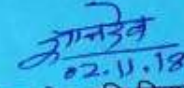 ज्ञानदेव
02.11.18